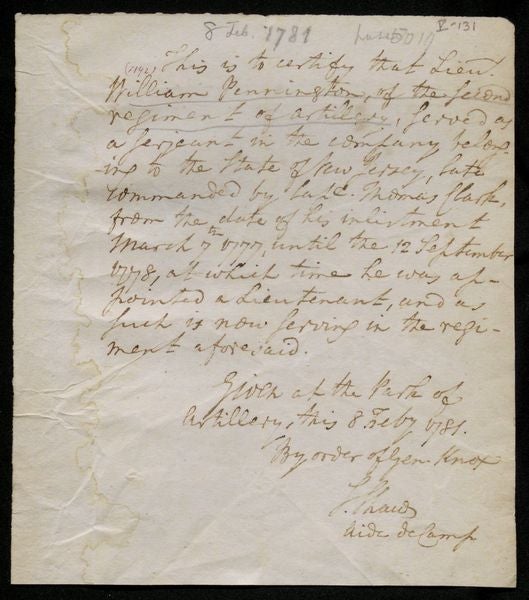 8 Feb. 1781
V-131
This is to certify that Lieut.
William Pennington, of the second
regiment of artillery, served as
a serjeant in the company belong-
ing to the State of New Jersey, late
commanded by Capt. Thomas Clark,
from the date of his inlistment
March 7th 1777, until the 12 September
1778, at which time he was ap-
pointed a Lieutenant, and as
such is now serving in the regi-
ment aforesaid.
Given at the Park of
Artillery, this 8 Feby 1781.
By order of Gen. Knox
S. Shaw
Aide de Camp